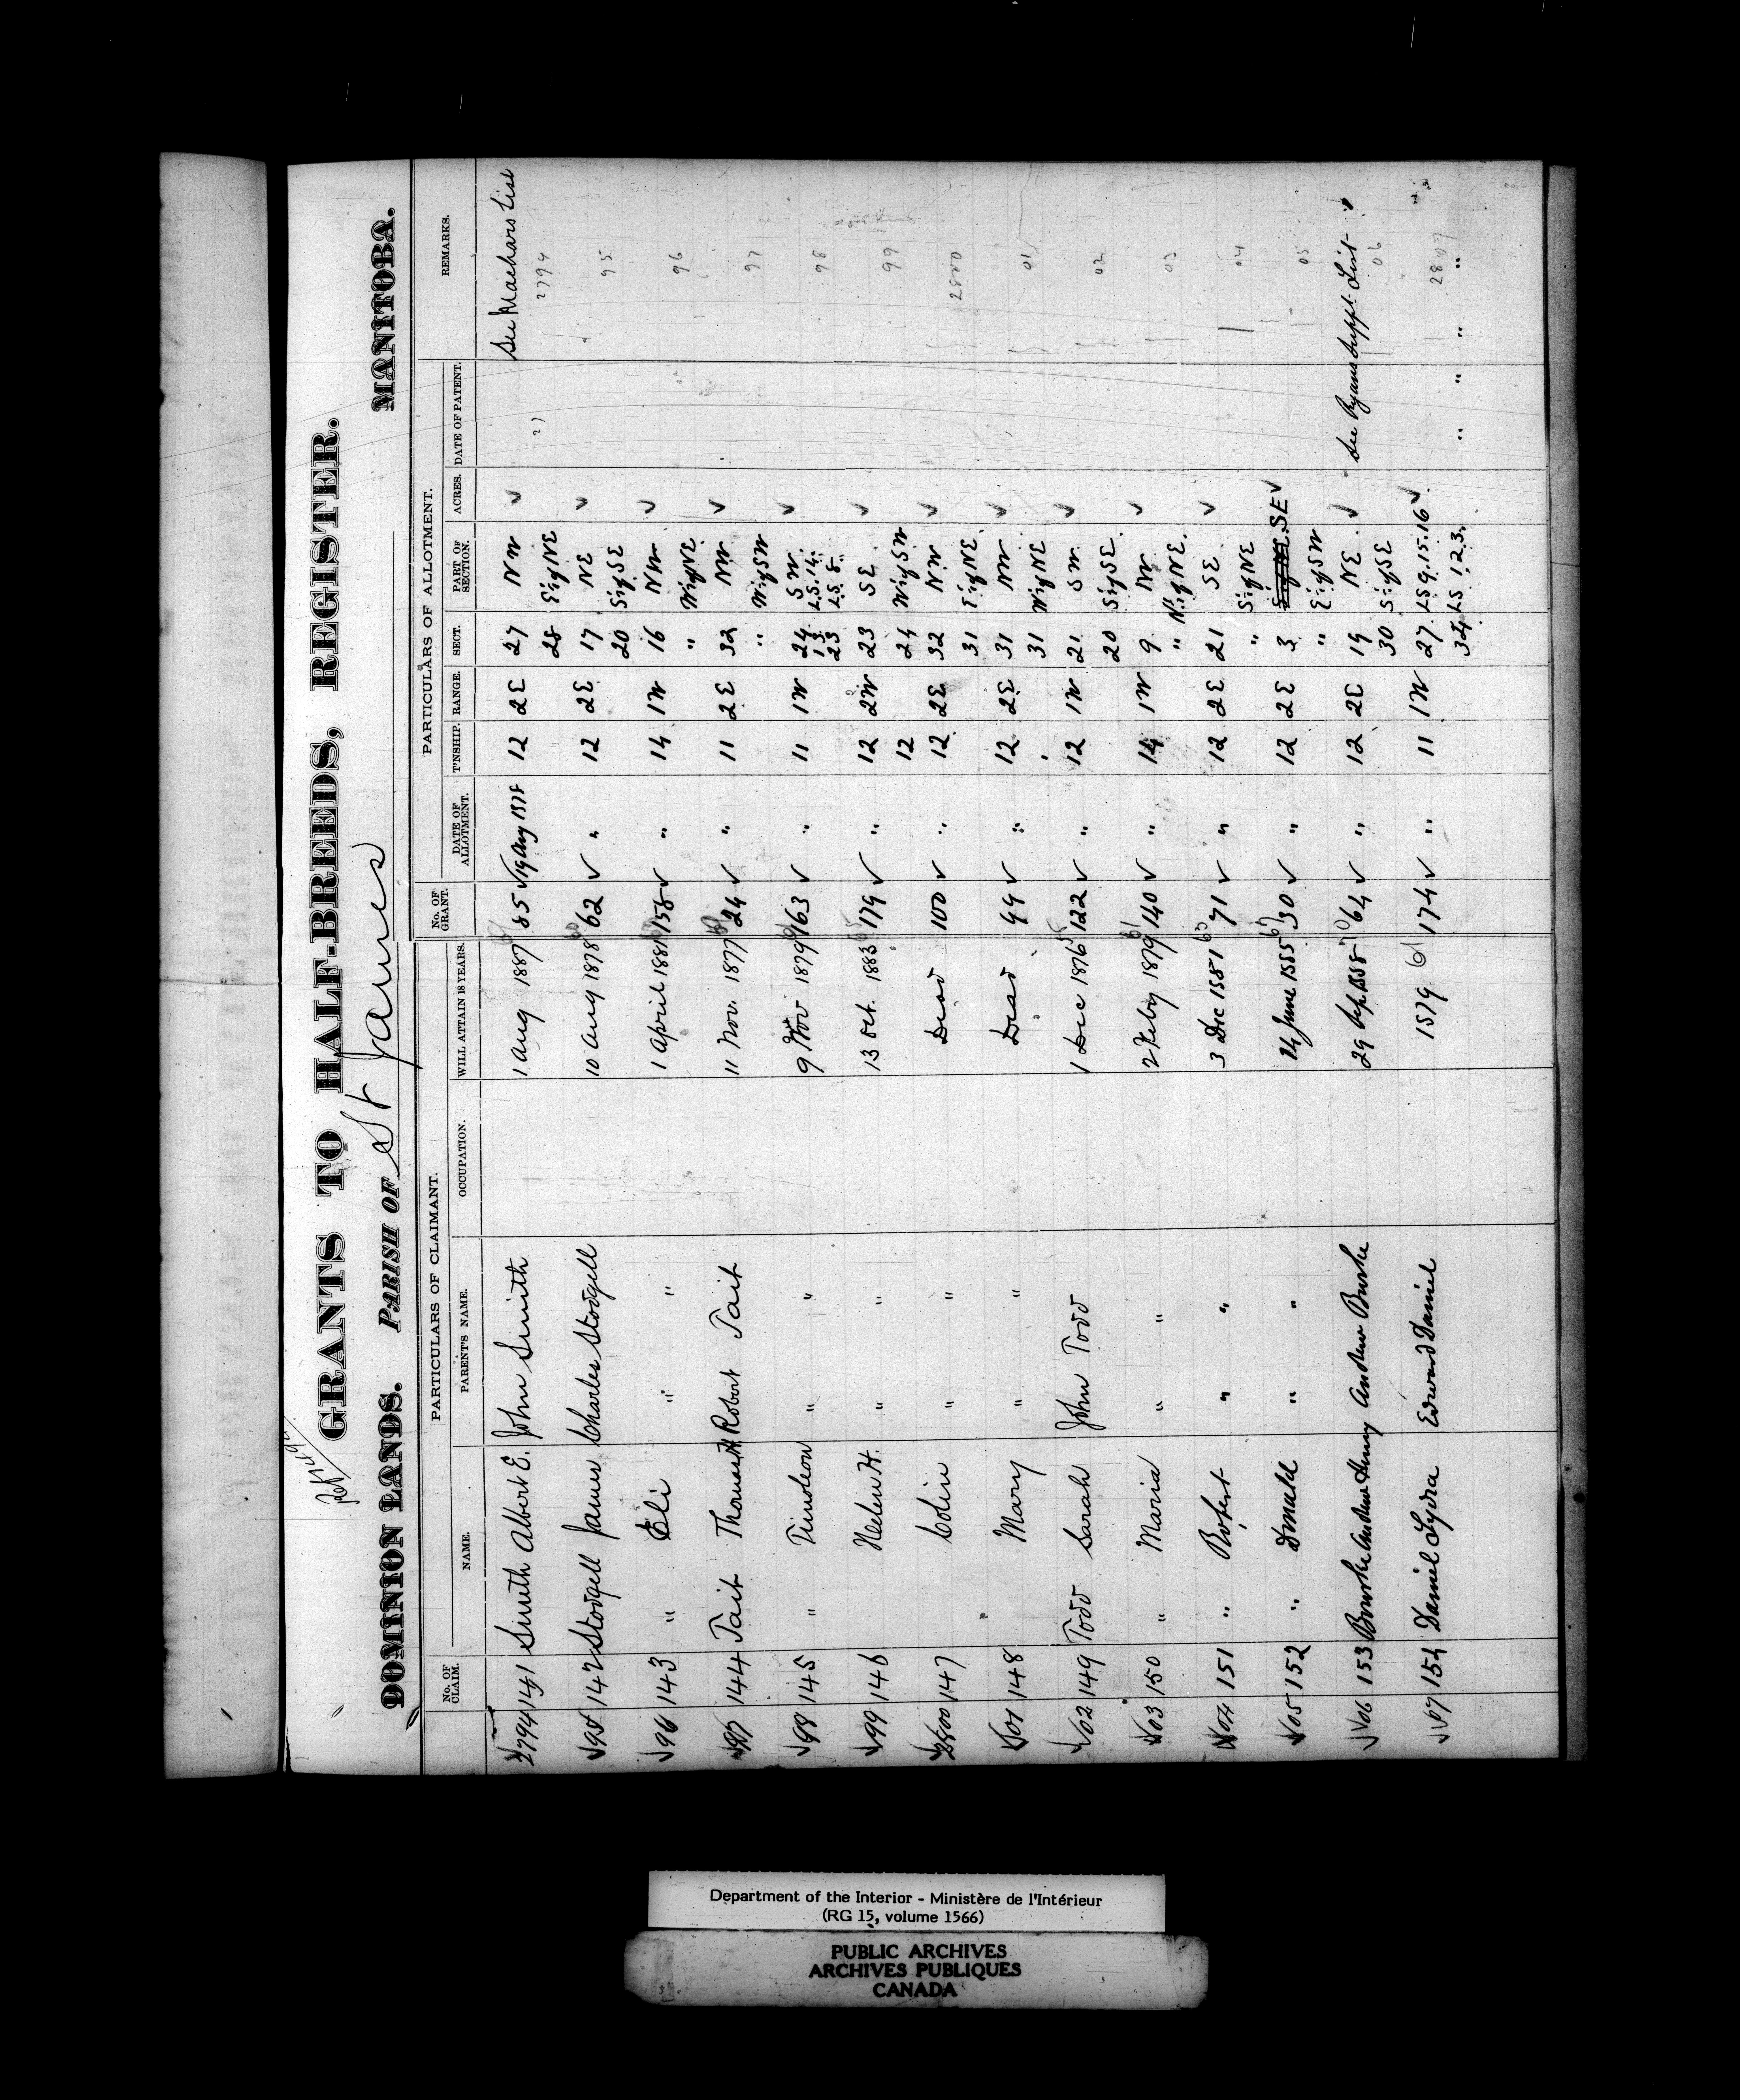 GRANTS TO HALF-BREEDS, REGISTER.
DOMINION LANDS. PARISH OF St James MANITOBA.
PARTICULARS OF CLAIMANT. PARTICULARS OF ALLOTMENT.
No. OF CLAIM. NAME. PARENT'S NAME. OCCUPATION. WILL ATTAIN 18 YEARS. No. OF GRANT. DATE OF ALLOTMENT. T'NSHIP. RANGE. SECT. PART OF SECTION. ACRES. DATE OF PATENT. REMARKS.
2794 141 Smith Albert E. John Smith 1 Aug 1887 85 ✓ 19 Aug 1878 12 2E 27 NW ✓ See Machars List
28 E½ of NE 2794
✓95 142 Stodgell James Charles Stodgell 10 Aug 1878 62 ✓ " 12 2E 17 NE ✓ 95
20 S½ of SE
✓96 143 " Eli " " 1 April 1881 158 ✓ " 14 1W 16 NW ✓ 96
" W½ of NE
✓97 144 Tait Thomas H Robert Tait 11 Nov. 1877 24 ✓ " 11 2E 32 NW ✓ 97
" W½ of SW
✓98 145 " Timoleon " " 9 Nov 1879 163 ✓ " 11 1W 24 SW ✓ 98
13 L.S. 14.
23 L.S. 8.
✓99 146 Helen H. " " 13 Oct. 1883 179 ✓ " 12 2W 23 SE ✓ 99
12 24 W½ of SW
2800 147 Colin " " Dead 100 ✓ " 12 2E 32 NW ✓ 2800
31 E½ of NE
✓01 148 Mary " " Dead 99 ✓ " 12 2E 31 NW ✓ 01
31 W½ of NE
✓02 149 Todd Sarah John Todd 1 Dec 1876 122 ✓ " 12 1W 21 SW ✓ 02
20 S½ of SE
✓03 150 " Maria " " 2 Feby 1879 140 ✓ " 14 1W 9 NW ✓ 03
" N½ of NE
✓04 151 " Robert " " 3 Dec 1881 71 ✓ " 12 2E 21 SE ✓ 04
" S½ of NE
✓05 152 " Donald " " 14 June 1885 30 ✓ " 12 2E 3 SE ✓ 05
" E½ of SW
✓✓06 153 Bourke Andrew Henry Andrew Burke 29 Sep. 1888 64 ✓ " 12 2E 19 NE ✓ See Ryans Suppl. List ✓
30 S½ of SE 06
✓✓07 154 Daniel Lydia Edward Daniel 1879 174 ✓ " 11 1W 27 LS 9.15.16 ✓ 2807
34 LS 1.2.3. " " " "
Department of the Interior - Ministère de l'Intérieur
(RG 15, volume 1566)
PUBLIC ARCHIVES
ARCHIVES PUBLIQUES
CANADA